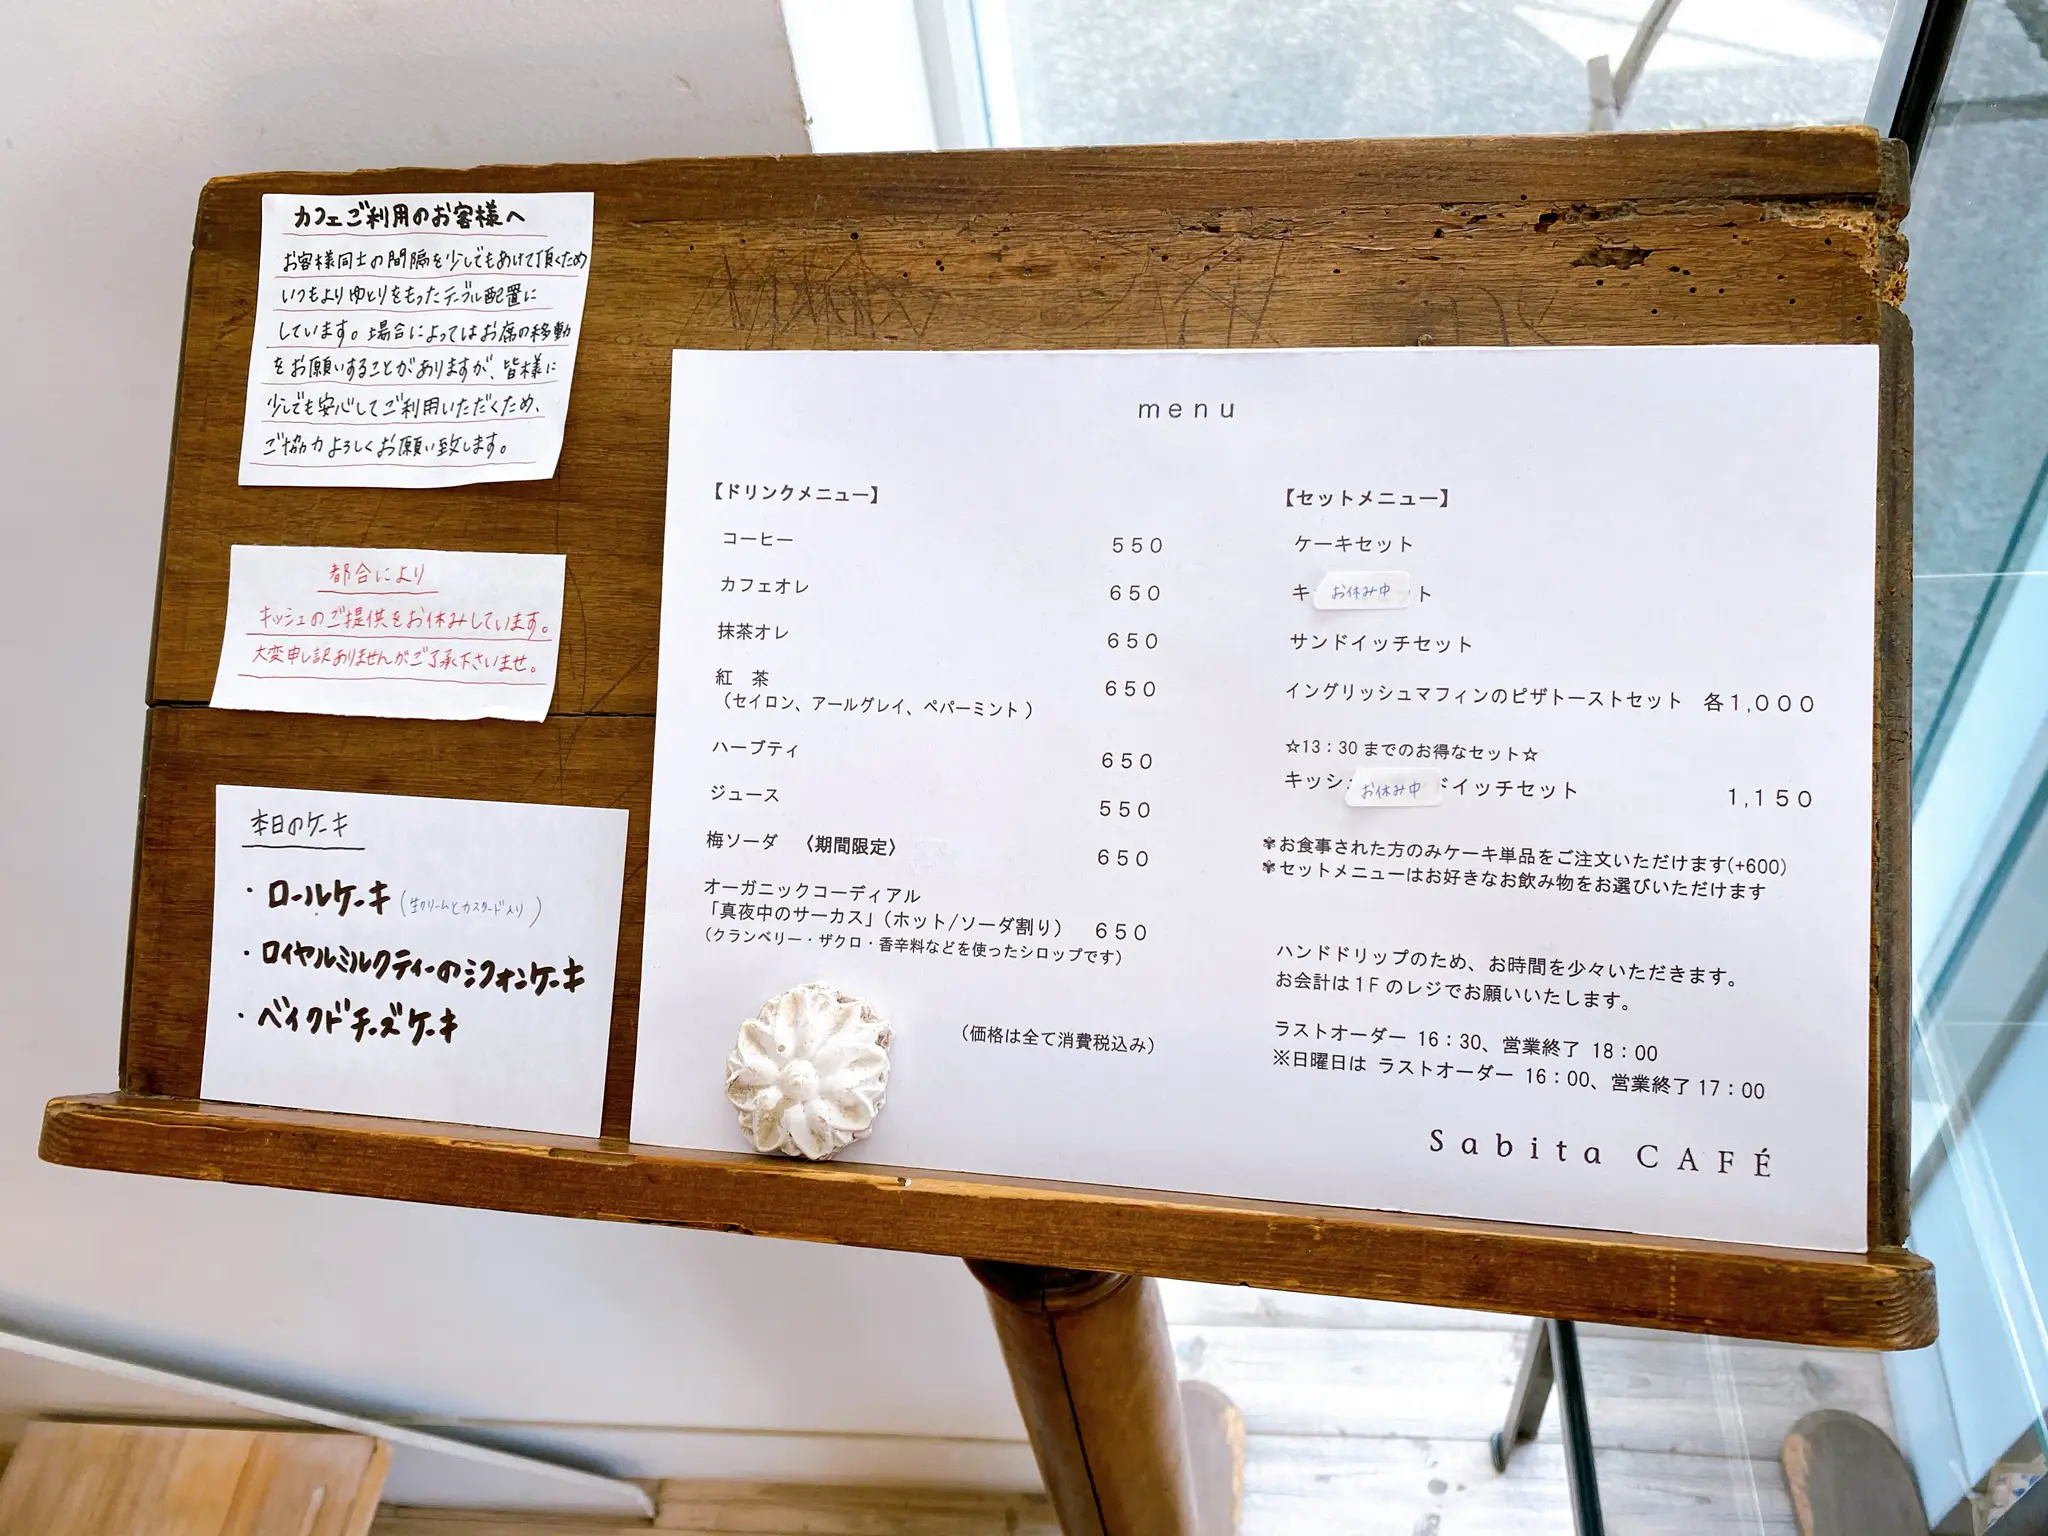 カフェご利用のお客様へ
お客様同士の間隔を少しでもあけて頂くため
いつもよりゆとりをもったテーブル配置に
しています。場合によってはお席の移動
をお願いすることがありますが、皆様に
少しでも安心してご利用いただくため、
ご協力よろしくお願い致します。
都合により
キッシュのご提供をお休みしています。
大変申し訳ありませんがご了承下さいませ。
本日のケーキ
・ロールケーキ(生クリームとカスタード入り)
・ロイヤルミルクティーのシフォンケーキ
・ベイクドチーズケーキ
menu
【ドリンクメニュー】
コーヒー 550
カフェオレ 650
抹茶オレ 650
紅 茶 650
(セイロン、アールグレイ、ペパーミント)
ハーブティ 650
ジュース 550
梅ソーダ 〈期間限定〉 650
オーガニックコーディアル
「真夜中のサーカス」(ホット/ソーダ割り) 650
(クランベリー・ザクロ・香辛料などを使ったシロップです)
(価格は全て消費税込み)
【セットメニュー】
ケーキセット
キ お休み中 ト
サンドイッチセット
イングリッシュマフィンのピザトーストセット 各1,000
☆13:30までのお得なセット☆
キッシ お休み中 ドイッチセット 1,150
✾お食事された方のみケーキ単品をご注文いただけます(+600)
✾セットメニューはお好きなお飲み物をお選びいただけます
ハンドドリップのため、お時間を少々いただきます。
お会計は1Fのレジでお願いいたします。
ラストオーダー 16:30、営業終了 18:00
※日曜日は ラストオーダー 16:00、営業終了17:00
Sabita CAFÉ